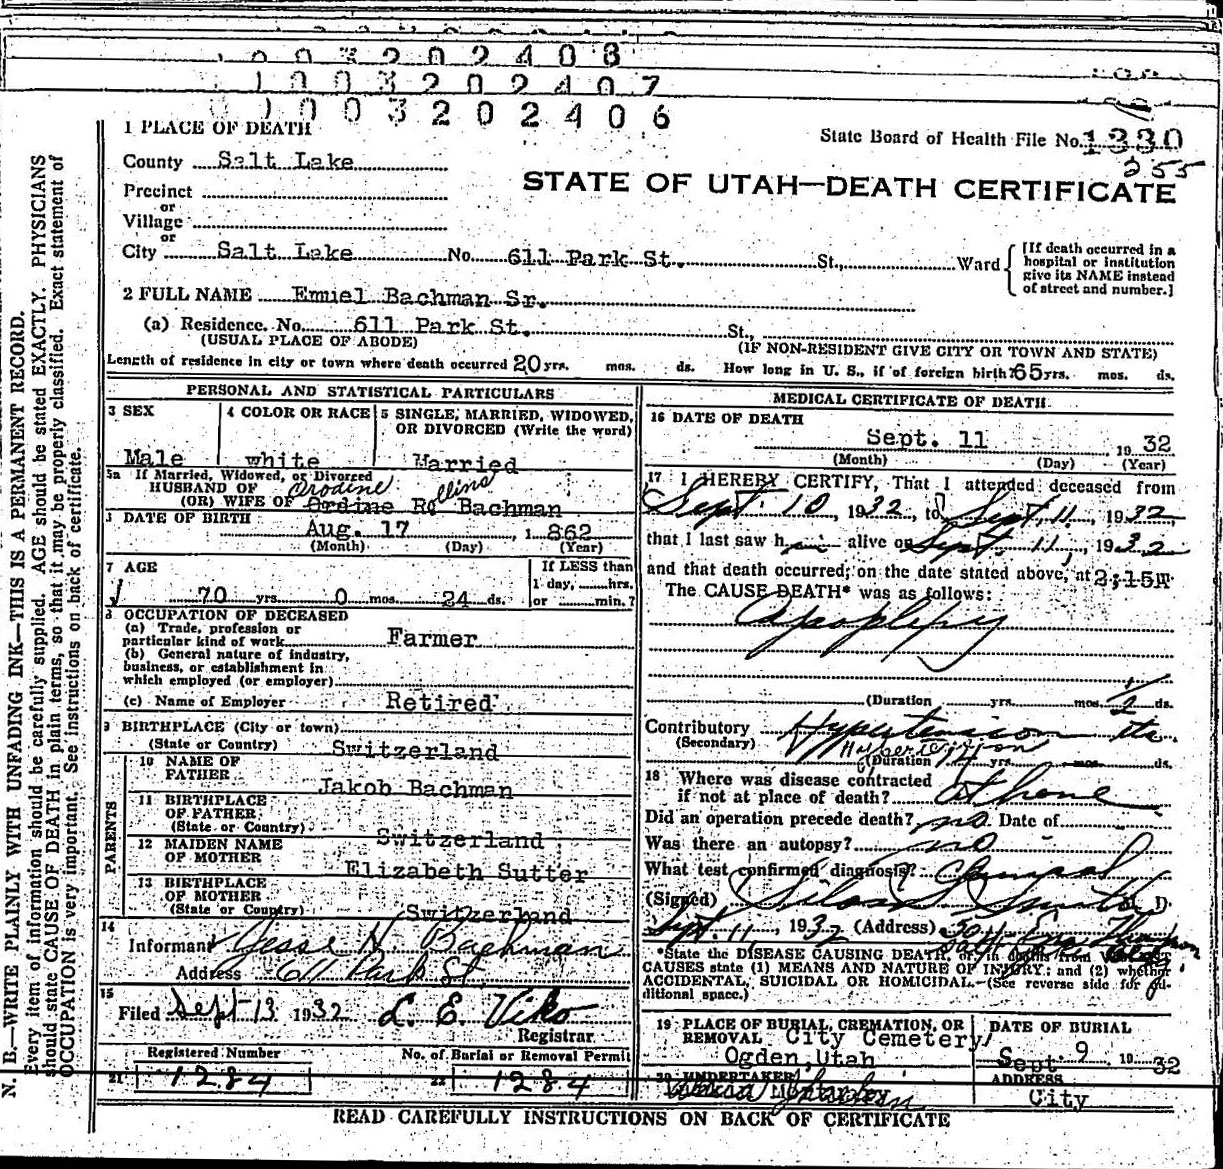 1003202408
1003202407
01003202406
State Board of Health File No. 1330
255
STATE OF UTAH—DEATH CERTIFICATE
1 PLACE OF DEATH
County Salt Lake
Precinct
or
Village
or
City Salt Lake No. 611 Park St. St., Ward
[If death occurred in a hospital or institution give its NAME instead of street and number.]
2 FULL NAME Emmiel Bachman Sr.
(a) Residence. No. 611 Park St. St.,
(USUAL PLACE OF ABODE) (IF NON-RESIDENT GIVE CITY OR TOWN AND STATE)
Length of residence in city or town where death occurred 20 yrs. mos. ds. How long in U. S., if of foreign birth? 65 yrs. mos. ds.
PERSONAL AND STATISTICAL PARTICULARS
3 SEX
Male
4 COLOR OR RACE
white
5 SINGLE, MARRIED, WIDOWED, OR DIVORCED (Write the word)
Married
5a If Married, Widowed, or Divorced
HUSBAND OF
(OR) WIFE OF Ordine Ro Bachman
Rollins
DATE OF BIRTH Aug. 17, 1862
(Month) (Day) (Year)
7 AGE
70 yrs. 0 mos. 24 ds.
If LESS than
1 day, hrs.
or min.?
8 OCCUPATION OF DECEASED
(a) Trade, profession or
particular kind of work Farmer
(b) General nature of industry,
business, or establishment in
which employed (or employer)
(c) Name of Employer Retired
9 BIRTHPLACE (City or town)
(State or Country) Switzerland
PARENTS
10 NAME OF
FATHER Jakob Bachman
11 BIRTHPLACE
OF FATHER
(State or Country) Switzerland
12 MAIDEN NAME
OF MOTHER Elizabeth Sutter
13 BIRTHPLACE
OF MOTHER
(State or Country) Switzerland
14
Informant Jesse N. Bachman
Address 611 Park St.
15
Filed Sept 13 1932 L. E. Viko
Registrar
Registered Number
21 1284
No. of Burial or Removal Permit
22 1284
MEDICAL CERTIFICATE OF DEATH
16 DATE OF DEATH
Sept. 11 1932
(Month) (Day) (Year)
17 I HEREBY CERTIFY, That I attended deceased from
Sept. 10, 1932, to Sept. 11, 1932,
that I last saw him alive on Sept. 11, 1932
and that death occurred, on the date stated above, at 2:15
The CAUSE DEATH* was as follows:
Apoplexy
(Duration yrs. mos. 1/2 ds.
Contributory Hypertension etc.
(Secondary) Hypertension
(Duration yrs. mos. ds.
18 Where was disease contracted
if not at place of death? at home
Did an operation precede death? no Date of
Was there an autopsy? no
What test confirmed diagnosis? Clinical
(Signed) Silas S. Smith M. D.
Sept. 11, 1932 (Address)
*State the DISEASE CAUSING DEATH, or, in deaths from
CAUSES state (1) MEANS AND NATURE OF INJURY; and (2) whether
ACCIDENTAL, SUICIDAL OR HOMICIDAL—(See reverse side for ad-
ditional space.)
19 PLACE OF BURIAL, CREMATION, OR
REMOVAL City Cemetery
Ogden, Utah
DATE OF BURIAL
Sept. 9 1932
20 UNDERTAKER
ADDRESS
City
READ CAREFULLY INSTRUCTIONS ON BACK OF CERTIFICATE
N. B.—WRITE PLAINLY WITH UNFADING INK—THIS IS A PERMANENT RECORD.
Every item of information should be carefully supplied. AGE should be stated EXACTLY. PHYSICIANS
should state CAUSE OF DEATH in plain terms, so that it may be properly classified. Exact statement of
OCCUPATION is very important. See instructions on back of certificate.